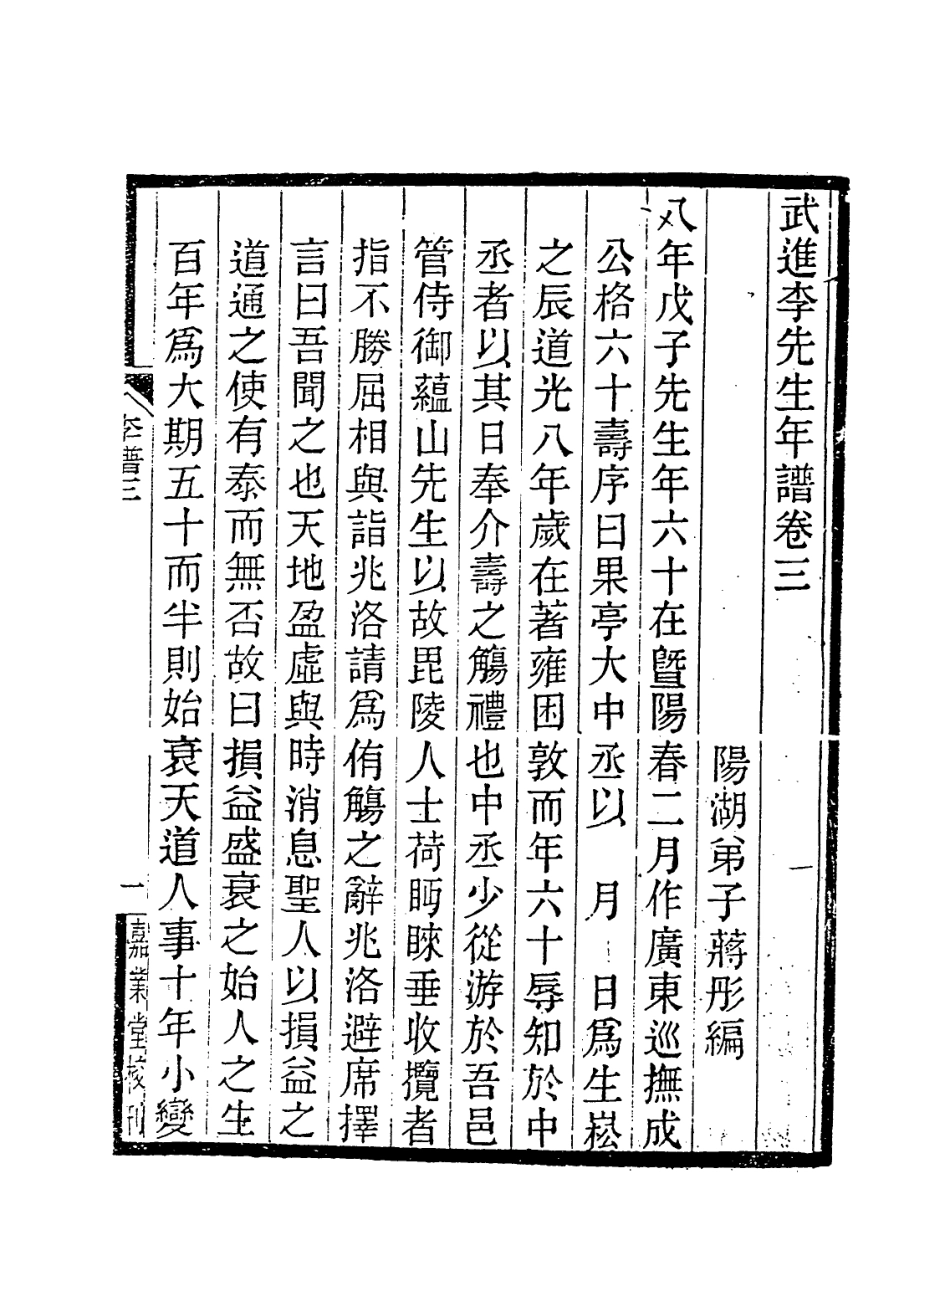 武進李先生年譜卷三
陽湖弟子蔣彤編
八年戊子先生年六十在曁陽春二月作廣東巡撫成
公格六十壽序曰果亭大中丞以　月　日爲生崧
之辰道光八年歲在著雍困敦而年六十辱知於中
丞者以其日奉介壽之觴禮也中丞少從游於吾邑
管侍御蘊山先生以故毘陵人士荷眄睞垂收攬者
指不勝屈相與詣兆洛請爲侑觴之辭兆洛避席擇
言曰吾聞之也天地盈虛與時消息聖人以損益之
道通之使有泰而無否故曰損益盛衰之始人之生
百年爲大期五十而半則始衰天道人事十年小變
李譜三
一
嘉業堂校刊